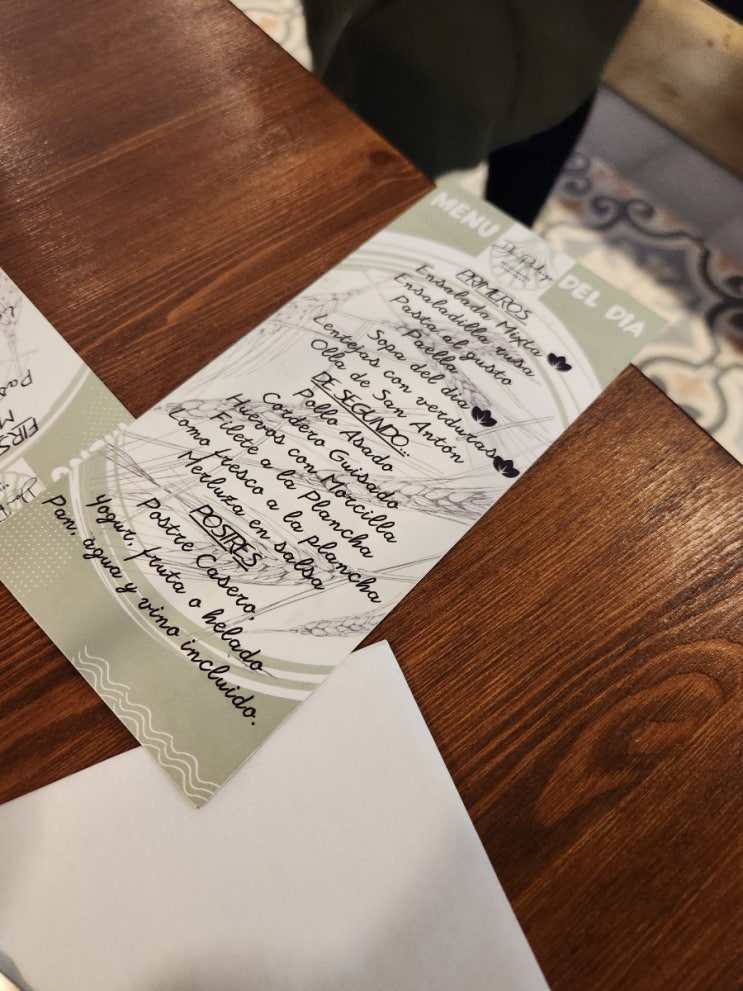 MENU DEL DIA
PRIMEROS
Ensalada Mixta
Ensaladilla rusa
Pasta al gusto
Paella
Sopa del dia
Lentejas con verduras
Olla de San Antón
DE SEGUNDO...
Pollo Asado
Cordero Guisado
Huevos con Morcilla
Filete a la Plancha
Lomo fresco a la plancha
Merluza en salsa
POSTRES
Postre Casero,
yogur, fruta o helado
Pan, agua y vino incluido.
FIRS